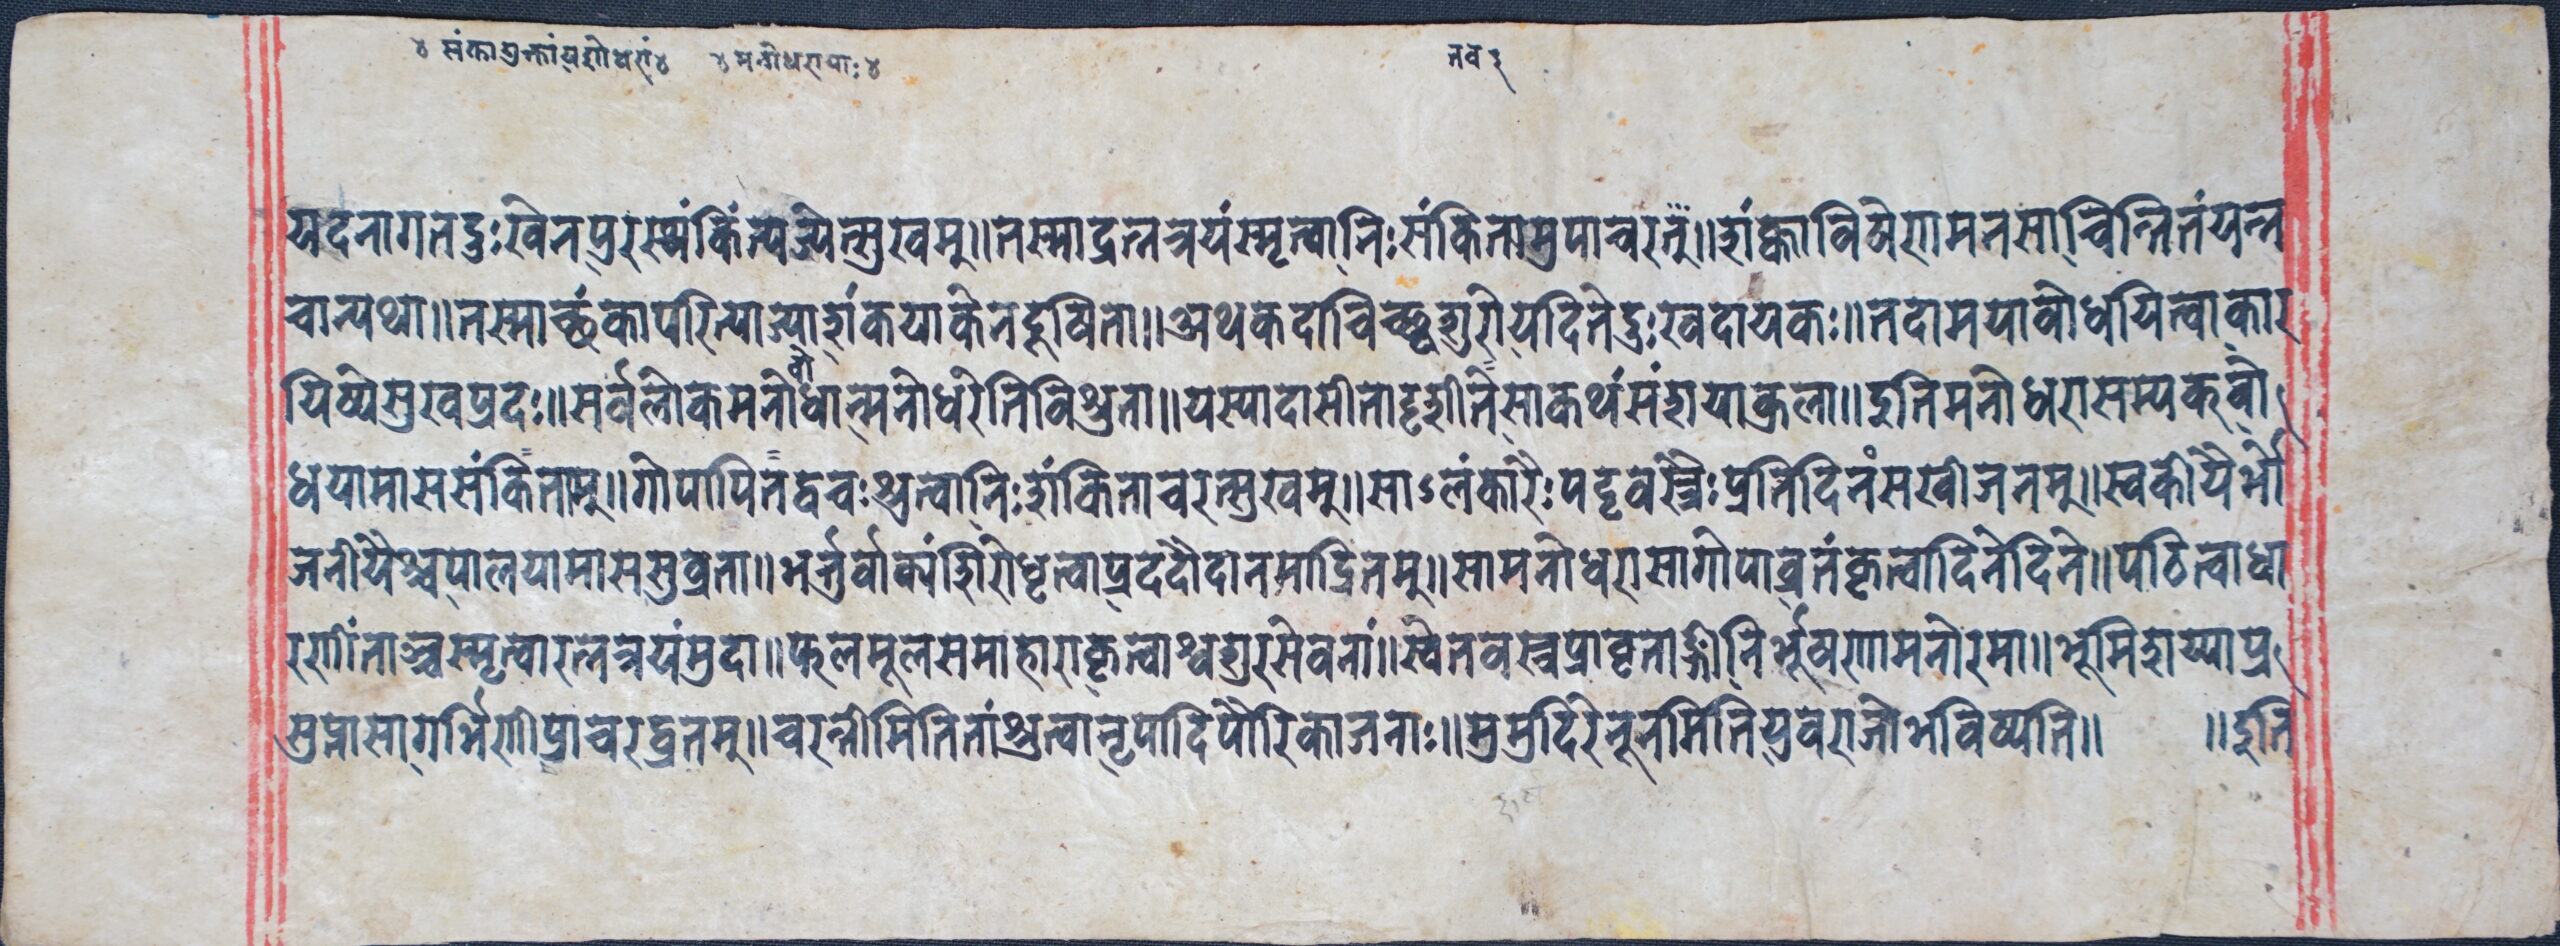 ४ संकायुक्तांयशोधरां४ ४ मनोधरायाः४ नव ३
यदनागतदुःखेन्पुरस्थंकिंत्यज्येत्सुखम्॥तस्माद्रत्नत्रयंस्मृत्वानिःसंकितामुपाचरत्॥शंकाविषेणमनसाचिन्तितंयन्न
चान्यथा॥तस्माच्छंकापरित्याज्याशंकयाकेनदूषिता॥अथकदाचिच्छ्वशुरोयदितेदुःखदायकः॥तदामयाबोधयित्वाकार
यिष्येसुखप्रदः॥सर्वलोकमनोबोधान्मनोधरेतिविश्रुता॥यस्यादासीतादृशीतेसाकथंसंशयाकुला॥इतिमनोधरासम्यक्बो
धयामाससंकिताम्॥गोपापितद्वचःश्रुत्वानिःशंकिताचरत्सुखम्॥साऽलंकारैःपट्टवस्त्रैःप्रतिदिनंसखीजनम्॥स्वकीयैर्भो
जनीयैश्चपालयामाससुव्रता॥भर्त्तुर्वाक्यंशिरोधृत्वाप्रददौदानमाद्रितम्॥सामनोधरासागोपाव्रतंकृत्वादिनेदिने॥पठित्वाधा
रणींताञ्चस्मृत्वारत्नत्रयंमुदा॥फलमूलसमाहाराकृत्वाश्वशुरसेवनां॥स्वेतवस्त्रप्रावृताङ्गीनिर्भूषणामनोरमा॥भूमिशय्याप्र
सुप्तासागर्भिणीप्राचरद्व्रतम्॥चरन्तीमितितांश्रुत्वानृपादिपौरिकाजनाः॥मुमुदिरेनूनमितियुवराजोभविष्यति॥ ॥इति